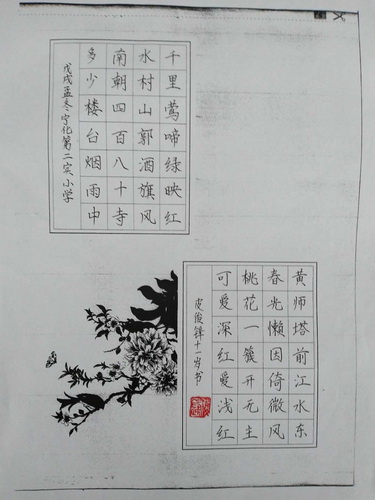 千里莺啼绿映红
水村山郭酒旗风
南朝四百八十寺
多少楼台烟雨中
戊戌孟冬宁化第二实小学
黄师塔前江水东
春光懒困倚微风
桃花一簇开无主
可爱深红爱浅红
皮俊锋十一岁书